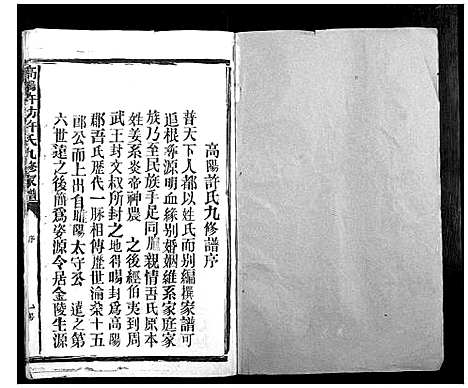 高陽許氏九修譜序
普天下人都以姓氏而別編撰家譜可
追根尋源明血緣別婚姻維系家庭家
族乃至民族手足同胞親情吾氏原本
姓姜系炎帝神農 之後經伯夷到周
武王封文叔所封之地得暘封為高陽
郡吾氏歷代一脉相傳歷世渝榮十五
邱公而上出自睢陽太守公 遠之第
六世遠之後裔為姿源令居金陵生源
高陽許氏九修家譜
序